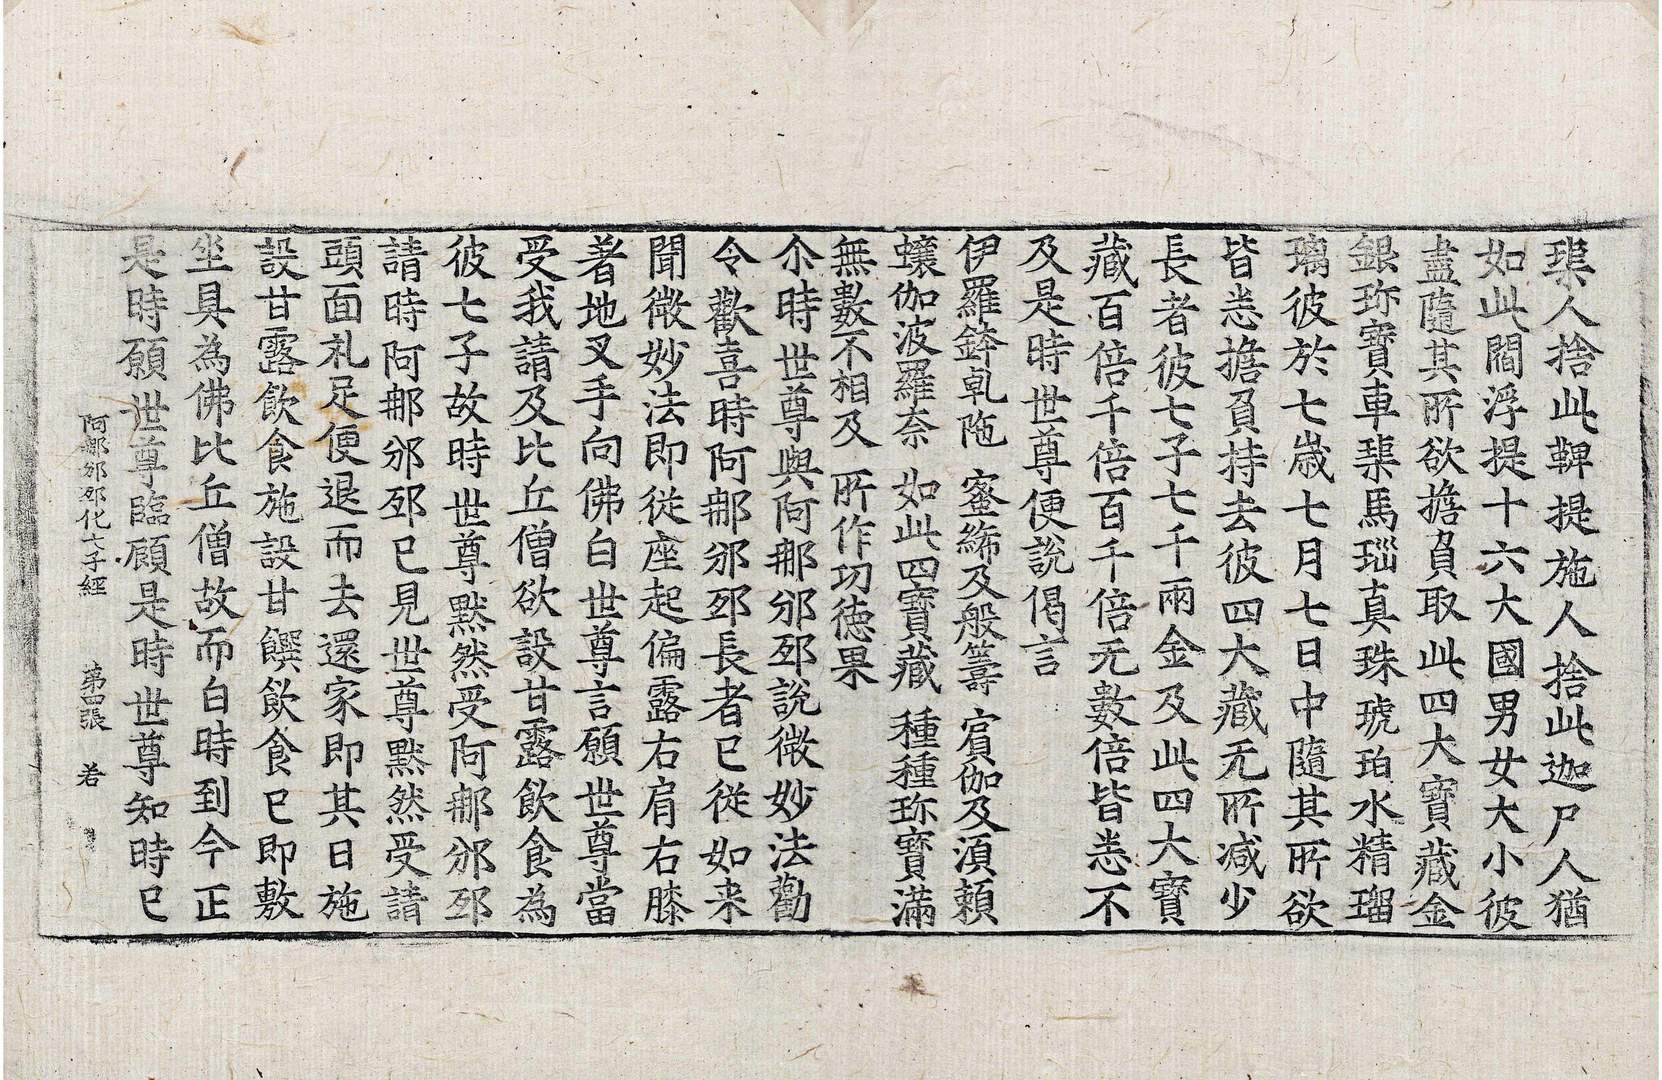 棐人捨此鞞提施人捨此迦尸人猶
如此閻浮提十六大國男女大小彼
盡隨其所欲擔負取此四大寶藏金
銀珎寶車𤦲馬瑙真珠琥珀水精瑠
璃彼於七歲七月七日中隨其所欲
皆悉擔負持去彼四大藏无所減少
長者彼七子七千兩金及此四大寶
藏百倍千倍百千倍无數倍皆悉不
及是時世尊便說偈言
伊羅鉢乹陁 蜜絺及般籌 賔伽及湏賴
蠰伽波羅奈 如此四寶藏 種種珎寶滿
無數不相及 所作㓛德果
尒時世尊與阿那邠邳說微妙法勸
令歡喜時阿那邠邳長者已從如来
聞微妙法即從座起偏露右肩右膝
著地叉手向佛白世尊言願世尊當
受我請及比丘僧欲設甘露飲食為
彼七子故時世尊默然受阿那邠邳
請時阿那邠邳已見世尊默然受請
頭面礼足便退而去還家即其日施
設甘露飲食施設甘饌飲食已即敷
坐具為佛比丘僧故而白時到今正
是時願世尊臨顧是時世尊知時已
阿那邠邳化七子經 第四張 若